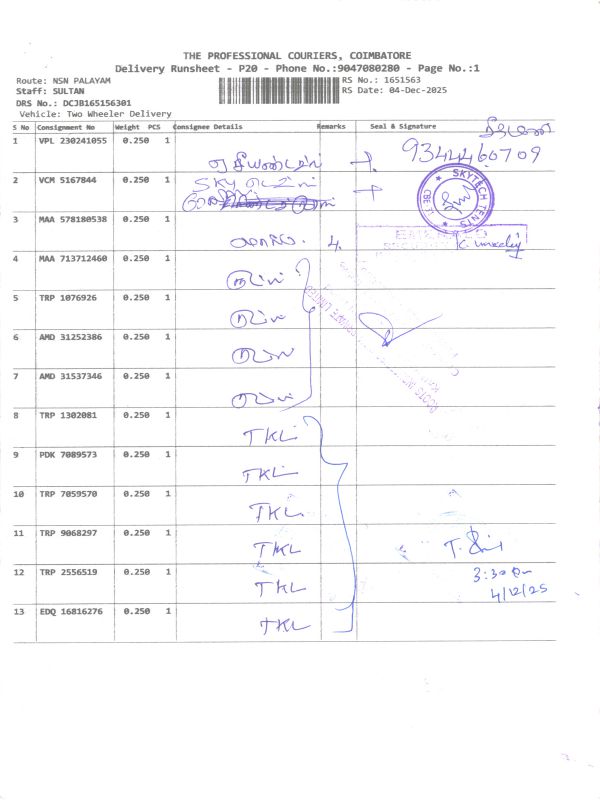 THE PROFESSIONAL COURIERS, COIMBATORE
Delivery Runsheet - P20 - Phone No.:9047080280 - Page No.:1
Route: NSN PALAYAM
RS No.: 1651563
Staff: SULTAN
RS Date: 04-Dec-2025
DRS No.: DCJB165156301
Vehicle: Two Wheeler Delivery
S No Consignment No Weight PCS Consignee Details Remarks Seal & Signature
1 VPL 230241055 0.250 1
9344460709
2 VCM 5167844 0.250 1 SKY
SKYTECH TENTS
3 MAA 578180538 0.250 1
4.
4 MAA 713712460 0.250 1 ரூட்ஸ்
5 TRP 1076926 0.250 1 ரூட்ஸ்
6 AMD 31252386 0.250 1 ரூட்ஸ்
7 AMD 31537346 0.250 1 ரூட்ஸ்
8 TRP 1302081 0.250 1 TKL
9 PDK 7089573 0.250 1 TKL
10 TRP 7059570 0.250 1 TKL
11 TRP 9068297 0.250 1 TKL
12 TRP 2556519 0.250 1 TKL
3:30 Pm
4/12/25
13 EDQ 16816276 0.250 1 TKL